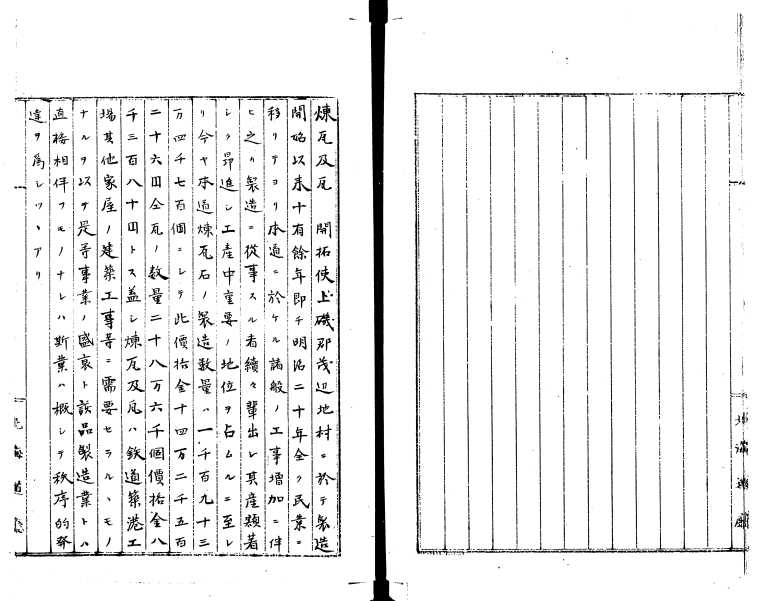 煉瓦及瓦 開拓使上磯郡茂辺地村ニ於テ製造
開始以来十有餘年即チ明治二十年全ク民業ニ
移リテヨリ本道ニ於ケル諸般ノ工事増加ニ伴
ヒ之カ製造ニ従事スル者續々輩出シ其産類著
シク昂進シ工産中重要ノ地位ヲ占ムルニ至レ
リ今ヤ本道煉瓦石ノ製造数量ハ一千百九十三
万四千七百個ニシテ此價拾金十四万二千五百
二十六円仝瓦ノ数量二十八万六千個價拾金八
千三百八十円トス蓋シ煉瓦及瓦ハ鉄道築港工
場其他家屋ノ建築工事等ニ需要セラルヽモノ
ナルヲ以テ是等事業ノ盛衰ト該品製造業トハ
直接相伴フモノナレハ斯業ハ概シテ秩序的発
達ヲ為シツヽアリ
北海道廳